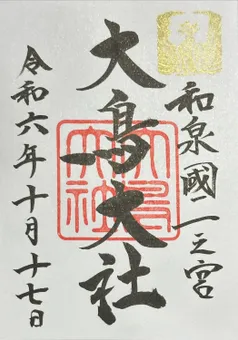 和泉國一之宮
大鳥大社
大鳥
大社
令和六年十月十七日